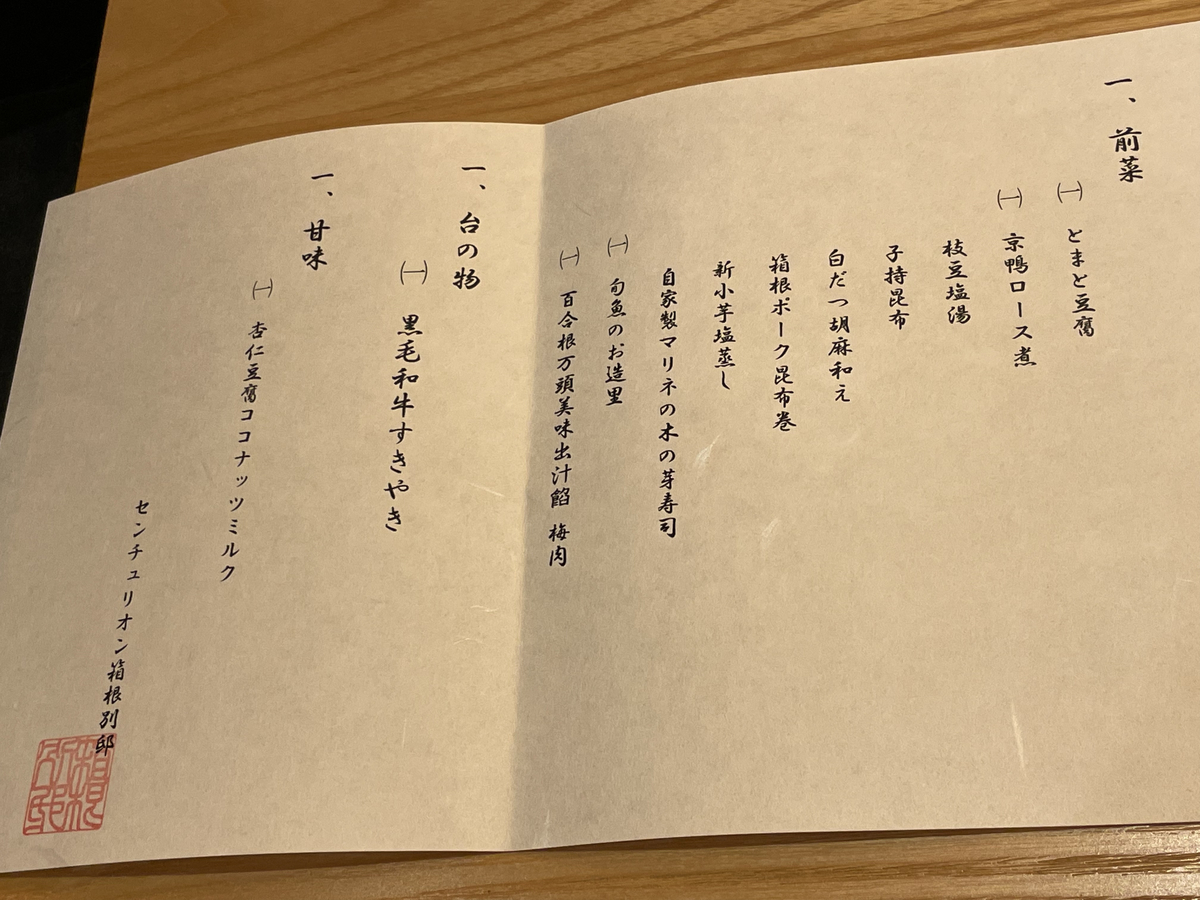 一、前菜
㈠ とまと豆腐
㈠ 京鴨ロース煮
枝豆塩湯
子持昆布
白だつ胡麻和え
箱根ポーク昆布巻
新小芋塩蒸し
自家製マリネの木の芽寿司
㈠ 旬魚のお造里
㈠ 百合根万頭美味出汁餡 梅肉
一、台の物
㈠ 黒毛和牛すきやき
一、甘味
㈠ 杏仁豆腐ココナッツミルク
センチュリオン箱根別邸
箱根
別邸